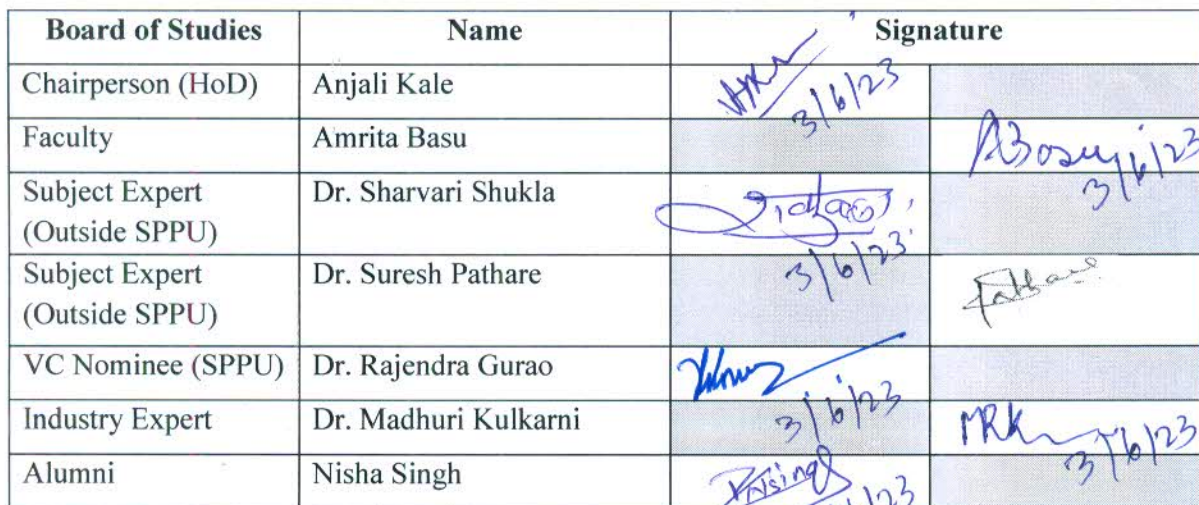 Board of Studies Name Signature
Chairperson (HoD) Anjali Kale
3/6/23
Faculty Amrita Basu ABasu
3/6/23
Subject Expert Dr. Sharvari Shukla
(Outside SPPU)
3/6/23
Subject Expert Dr. Suresh Pathare Pathare
(Outside SPPU)
VC Nominee (SPPU) Dr. Rajendra Gurao
3/6/23
Industry Expert Dr. Madhuri Kulkarni MRK
3/6/23
Alumni Nisha Singh